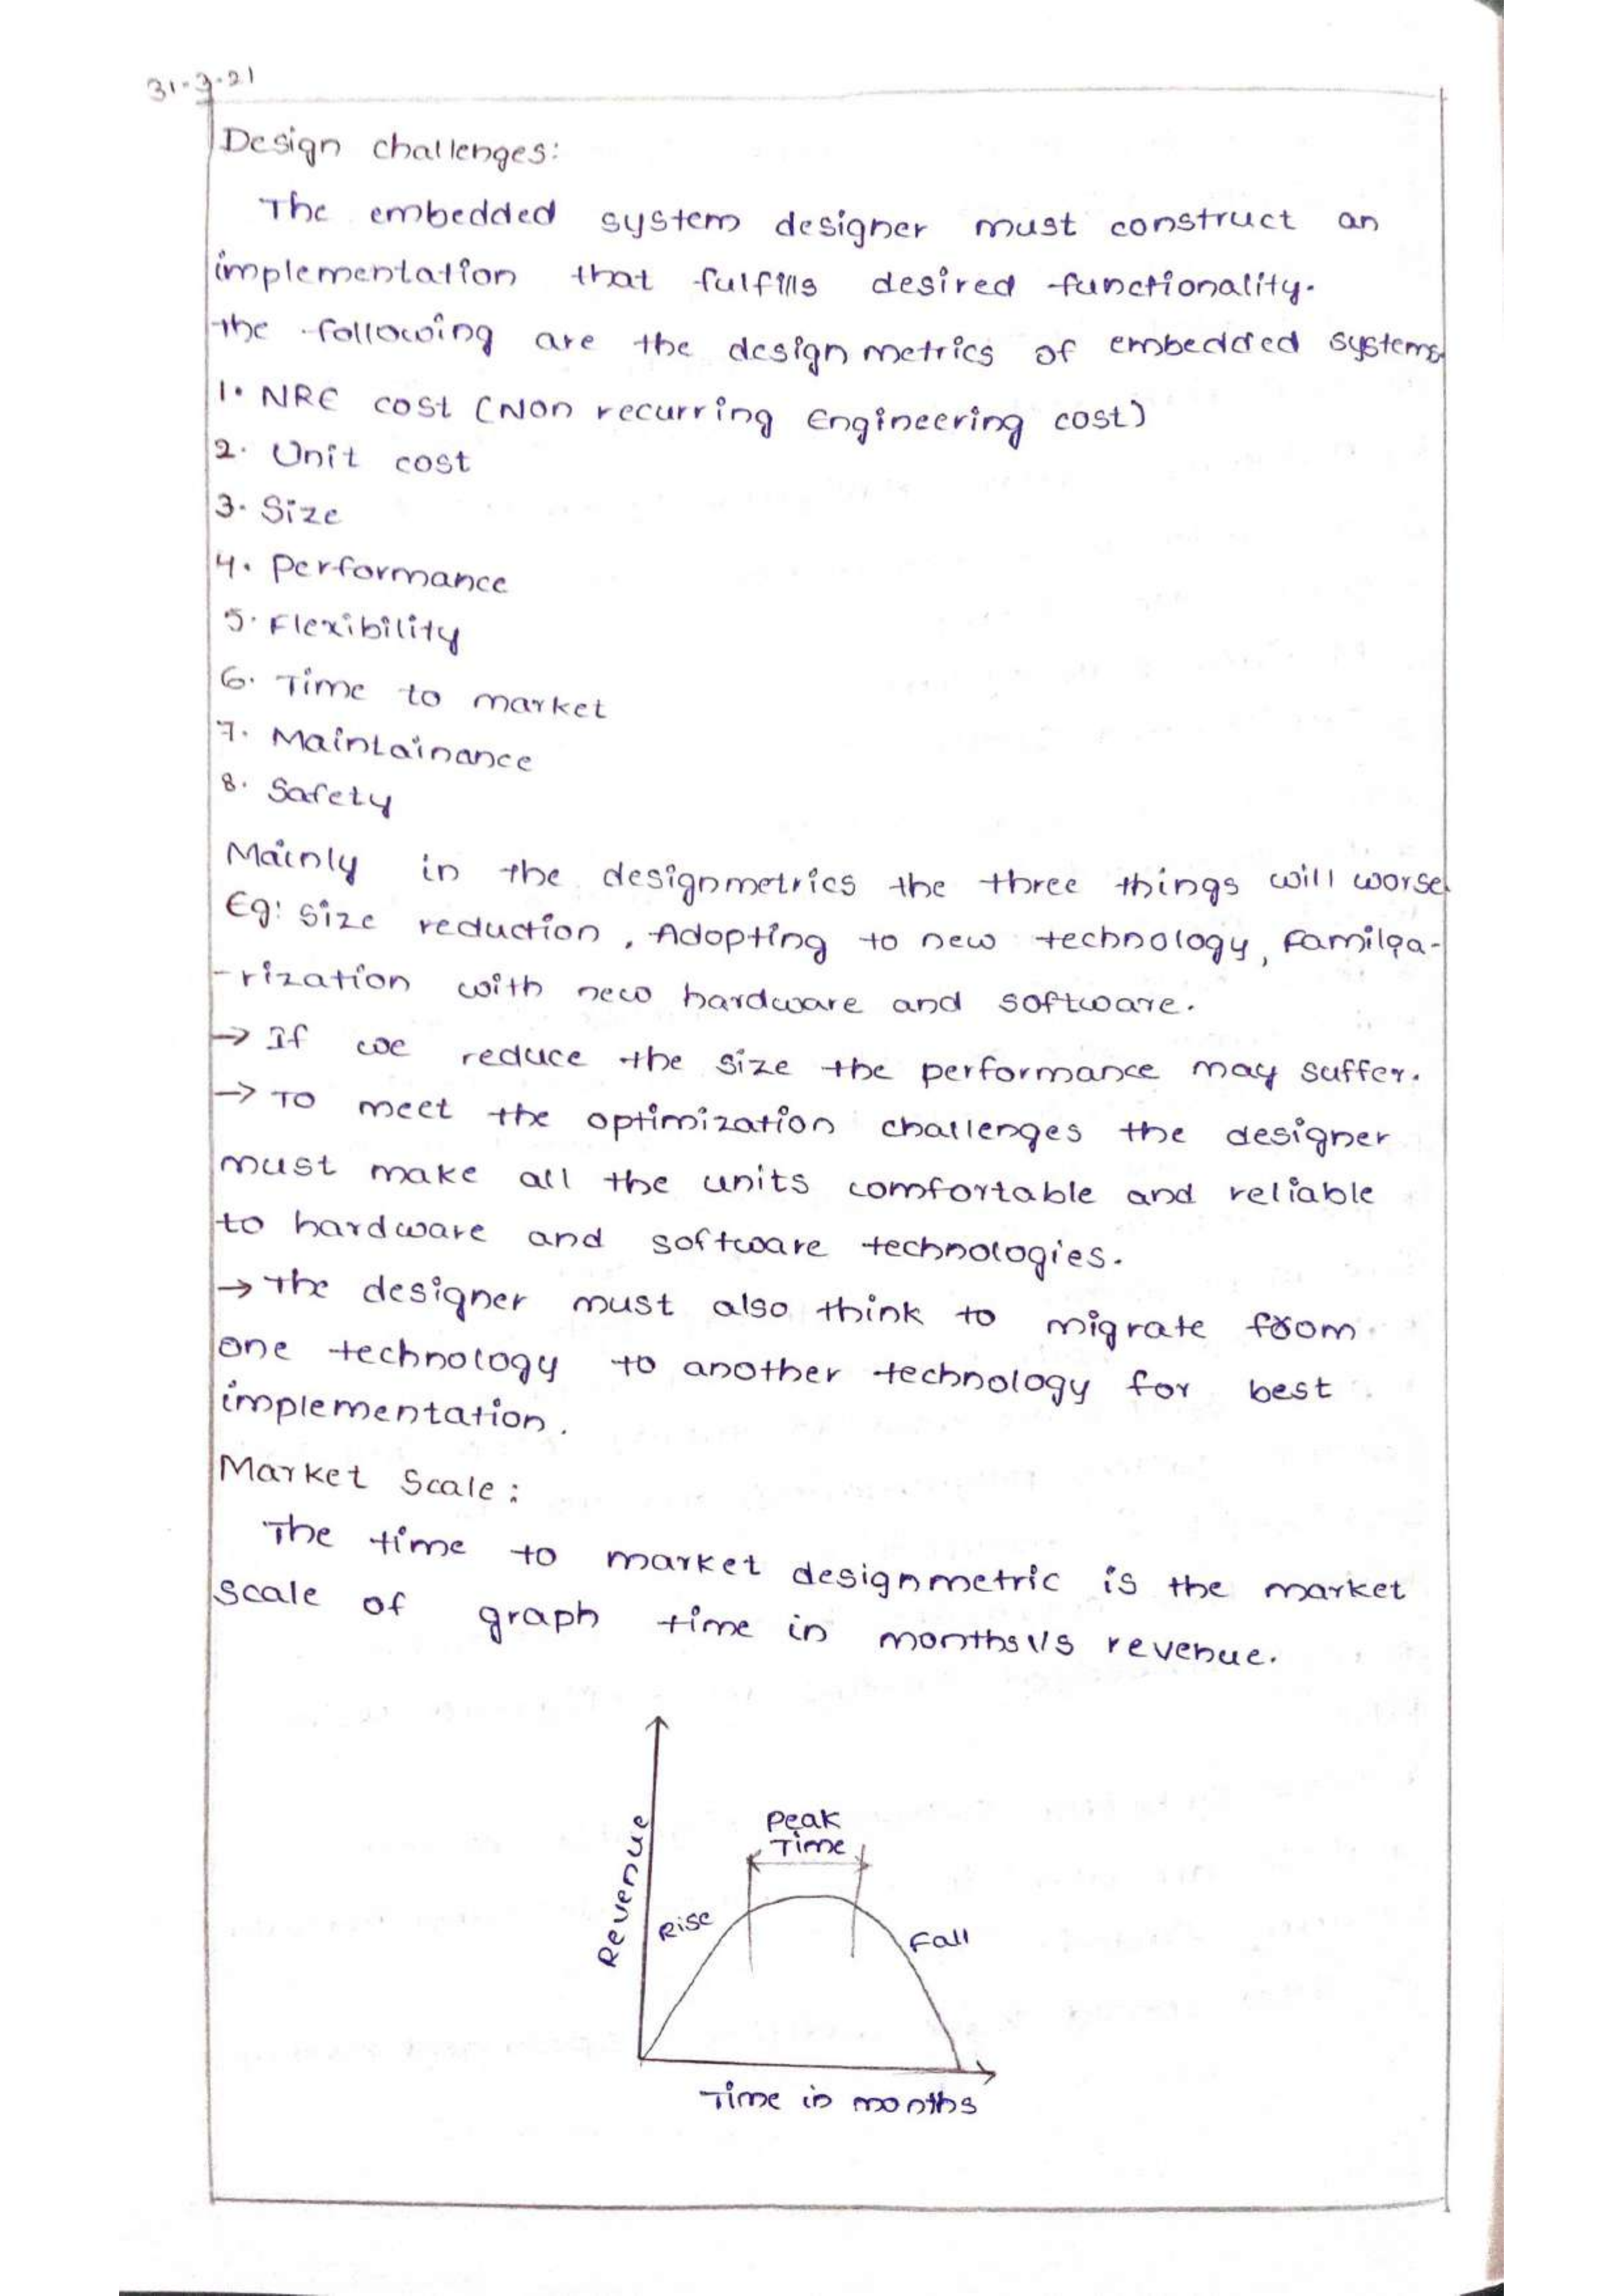 31-3-21
Design challenges:
The embedded system designer must construct an
implementation that fulfills desired functionality.
the following are the design metrics of embedded systems
1. NRE cost (Non recurring Engineering cost)
2. Unit cost
3. Size
4. Performance
5. Flexibility
6. Time to market
7. Maintainance
8. Safety
Mainly in the designmetrics the three things will worse
Eg: size reduction, Adopting to new technology, Familia-
-rization with new hardware and software.
→ If we reduce the size the performance may suffer.
→ To meet the optimization challenges the designer
must make all the units comfortable and reliable
to hardware and software technologies.
→ The designer must also think to migrate from
one technology to another technology for best
implementation.
Market Scale:
The time to market designmetric is the market
scale of graph time in months V/S revenue.
Peak
Time
Revenue
Rise
Fall
Time in months